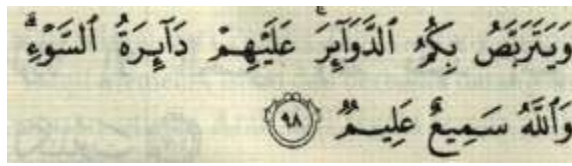 وَيَتَرَبَّصُ بِكُمُ ٱلدَّوَآئِرَ عَلَيْهِمْ دَآئِرَةُ ٱلسَّوْءِ
وَٱللَّهُ سَمِيعٌ عَلِيمٌ ٩٨